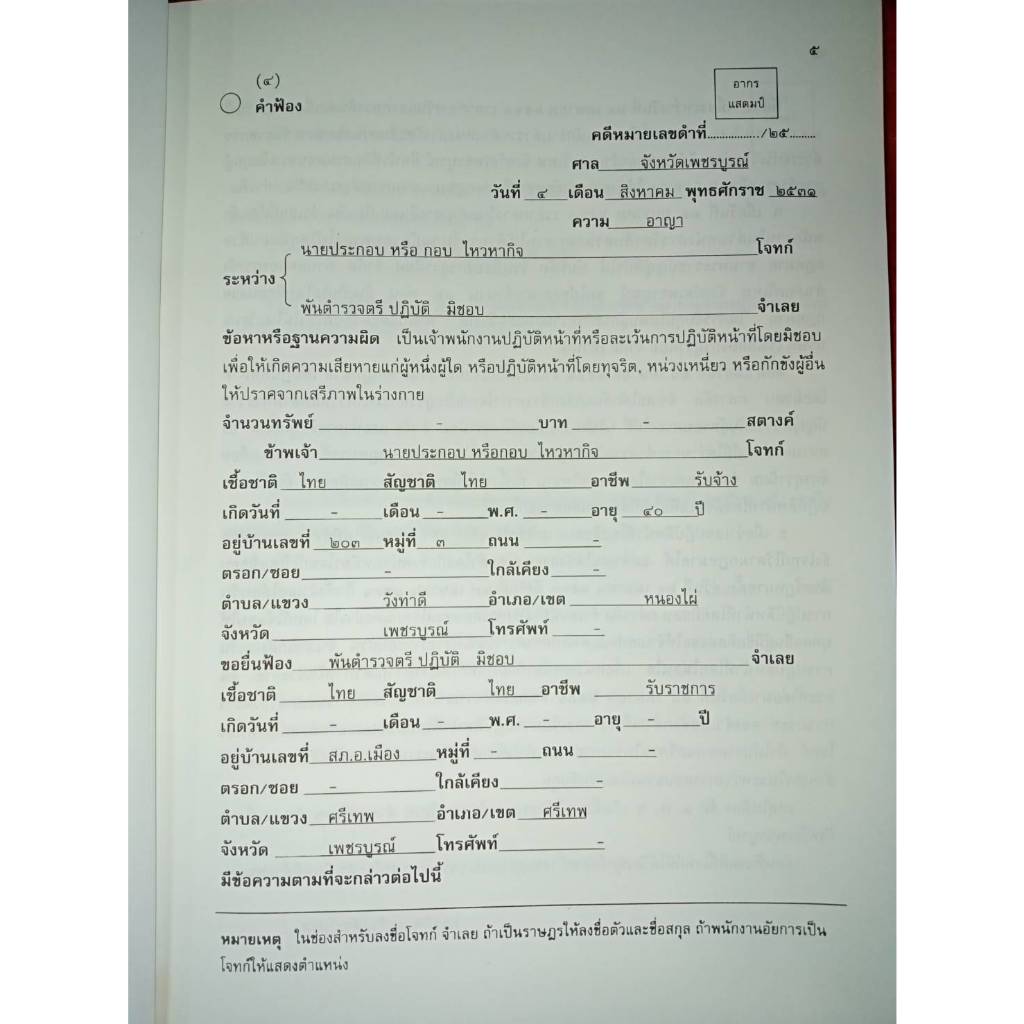 ๕
(๔)
อากร
แสตมป์
คำฟ้อง
คดีหมายเลขดำที่................/๒๕.........
ศาล จังหวัดเพชรบูรณ์
วันที่ ๔ เดือน สิงหาคม พุทธศักราช ๒๕๓๑
ความ อาญา
นายประกอบ หรือ กอบ ไหวหากิจ โจทก์
ระหว่าง
พันตำรวจตรี ปฏิบัติ มิชอบ จำเลย
ข้อหาหรือฐานความผิด เป็นเจ้าพนักงานปฏิบัติหน้าที่หรือละเว้นการปฏิบัติหน้าที่โดยมิชอบ
เพื่อให้เกิดความเสียหายแก่ผู้หนึ่งผู้ใด หรือปฏิบัติหน้าที่โดยทุจริต, หน่วงเหนี่ยว หรือกักขังผู้อื่น
ให้ปราศจากเสรีภาพในร่างกาย
จำนวนทรัพย์ - บาท - สตางค์
ข้าพเจ้า นายประกอบ หรือกอบ ไหวหากิจ โจทก์
เชื้อชาติ ไทย สัญชาติ ไทย อาชีพ รับจ้าง
เกิดวันที่ - เดือน - พ.ศ. - อายุ ๔๐ ปี
อยู่บ้านเลขที่ ๒๐๓ หมู่ที่ ๓ ถนน -
ตรอก/ซอย - ใกล้เคียง -
ตำบล/แขวง วังท่าดี อำเภอ/เขต หนองไผ่
จังหวัด เพชรบูรณ์ โทรศัพท์ -
ขอยื่นฟ้อง พันตำรวจตรี ปฏิบัติ มิชอบ จำเลย
เชื้อชาติ ไทย สัญชาติ ไทย อาชีพ รับราชการ
เกิดวันที่ - เดือน - พ.ศ. - อายุ - ปี
อยู่บ้านเลขที่ สภ.อ.เมือง หมู่ที่ - ถนน -
ตรอก/ซอย - ใกล้เคียง -
ตำบล/แขวง ศรีเทพ อำเภอ/เขต ศรีเทพ
จังหวัด เพชรบูรณ์ โทรศัพท์ -
มีข้อความตามที่จะกล่าวต่อไปนี้
หมายเหตุ ในช่องสำหรับลงชื่อโจทก์ จำเลย ถ้าเป็นราษฎรให้ลงชื่อตัวและชื่อสกุล ถ้าพนักงานอัยการเป็น
โจทก์ให้แสดงตำแหน่ง